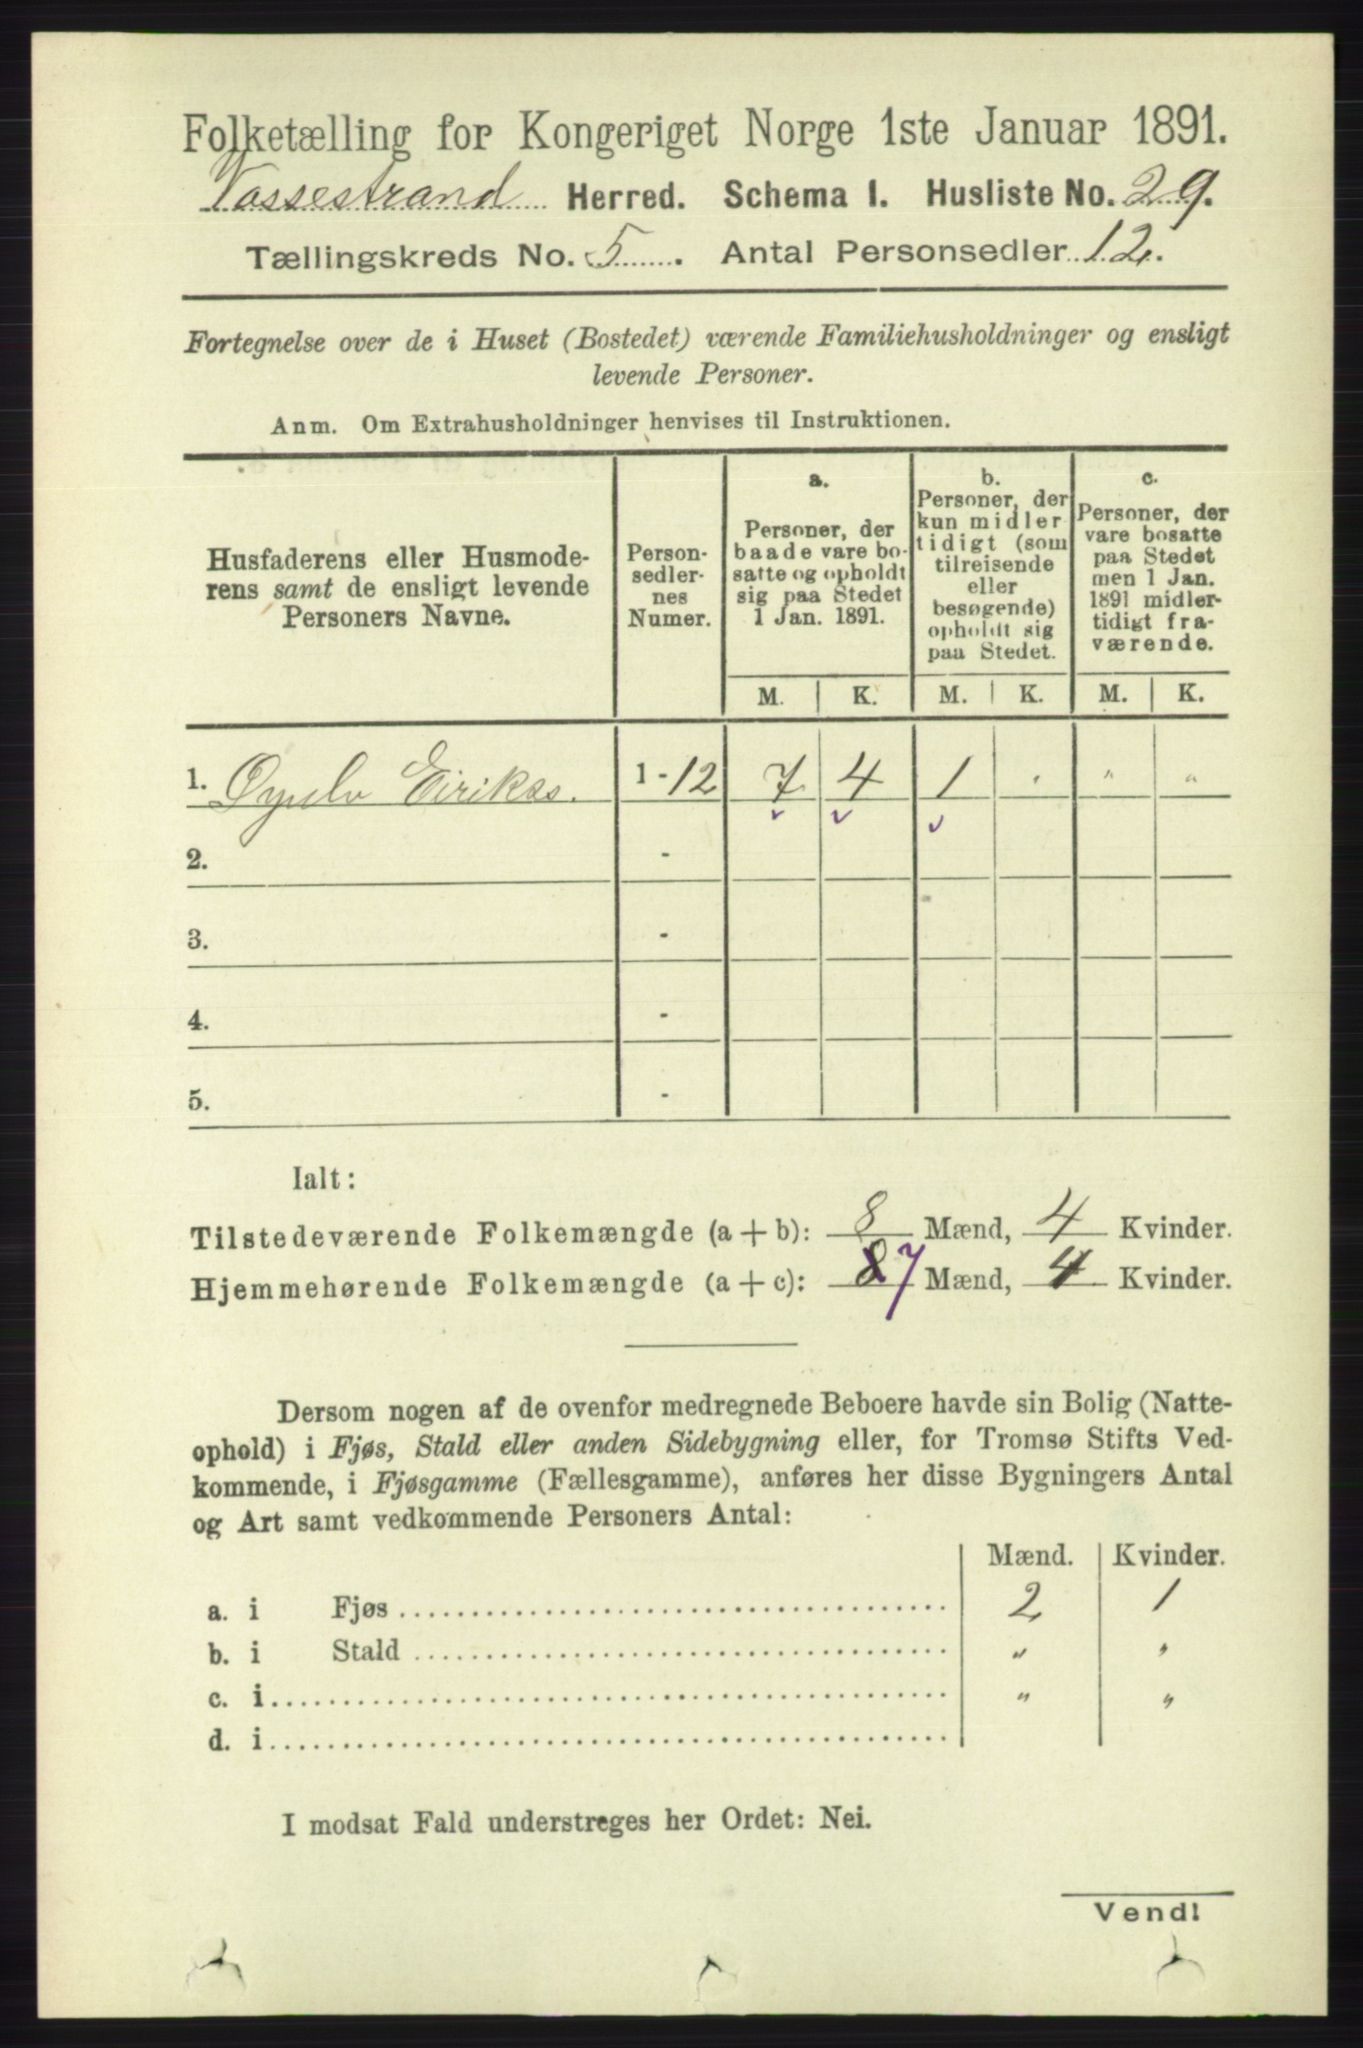 Folketælling for Kongeriget Norge 1ste Januar 1891.
Vossestrand Herred. Schema I. Husliste No. 29.
Tællingskreds No. 5. Antal Personsedler 12.
Fortegnelse over de i Huset (Bostedet) værende Familiehusholdninger og ensligt
levende Personer.
Anm. Om Extrahusholdninger henvises til Instruktionen.
Husfaderens eller Husmode-
rens samt de ensligt levende
Personers Navne.
Person-
sedler-
nes
Numer.
a.
Personer, der
baade vare bo-
satte og opholdt
sig paa Stedet
1 Jan. 1891.
b.
Personer, der
kun midler
tidigt (som
tilreisende
eller
besøgende)
opholdt sig
paa Stedet.
c.
Personer, der
vare bosatte
paa Stedet
men 1 Jan.
1891 midler-
tidigt fra-
værende.
M. K. M. K. M. K.
1. Eiriks. 1 - 12 7 4 1 " " "
2. -
3. -
4. -
5. -
Ialt:
Tilstedeværende Folkemængde (a + b): 8 Mænd, 4 Kvinder.
Hjemmehørende Folkemængde (a + c): 8 7 Mænd, 4 Kvinder.
Dersom nogen af de ovenfor medregnede Beboere havde sin Bolig (Natte-
ophold) i Fjøs, Stald eller anden Sidebygning eller, for Tromsø Stifts Ved-
kommende, i Fjøsgamme (Fællesgamme), anføres her disse Bygningers Antal
og Art samt vedkommende Personers Antal:
Mænd. Kvinder.
a. i Fjøs 2 1
b. i Stald " "
c. i " "
d. i
I modsat Fald understreges her Ordet: Nei.
Vend!